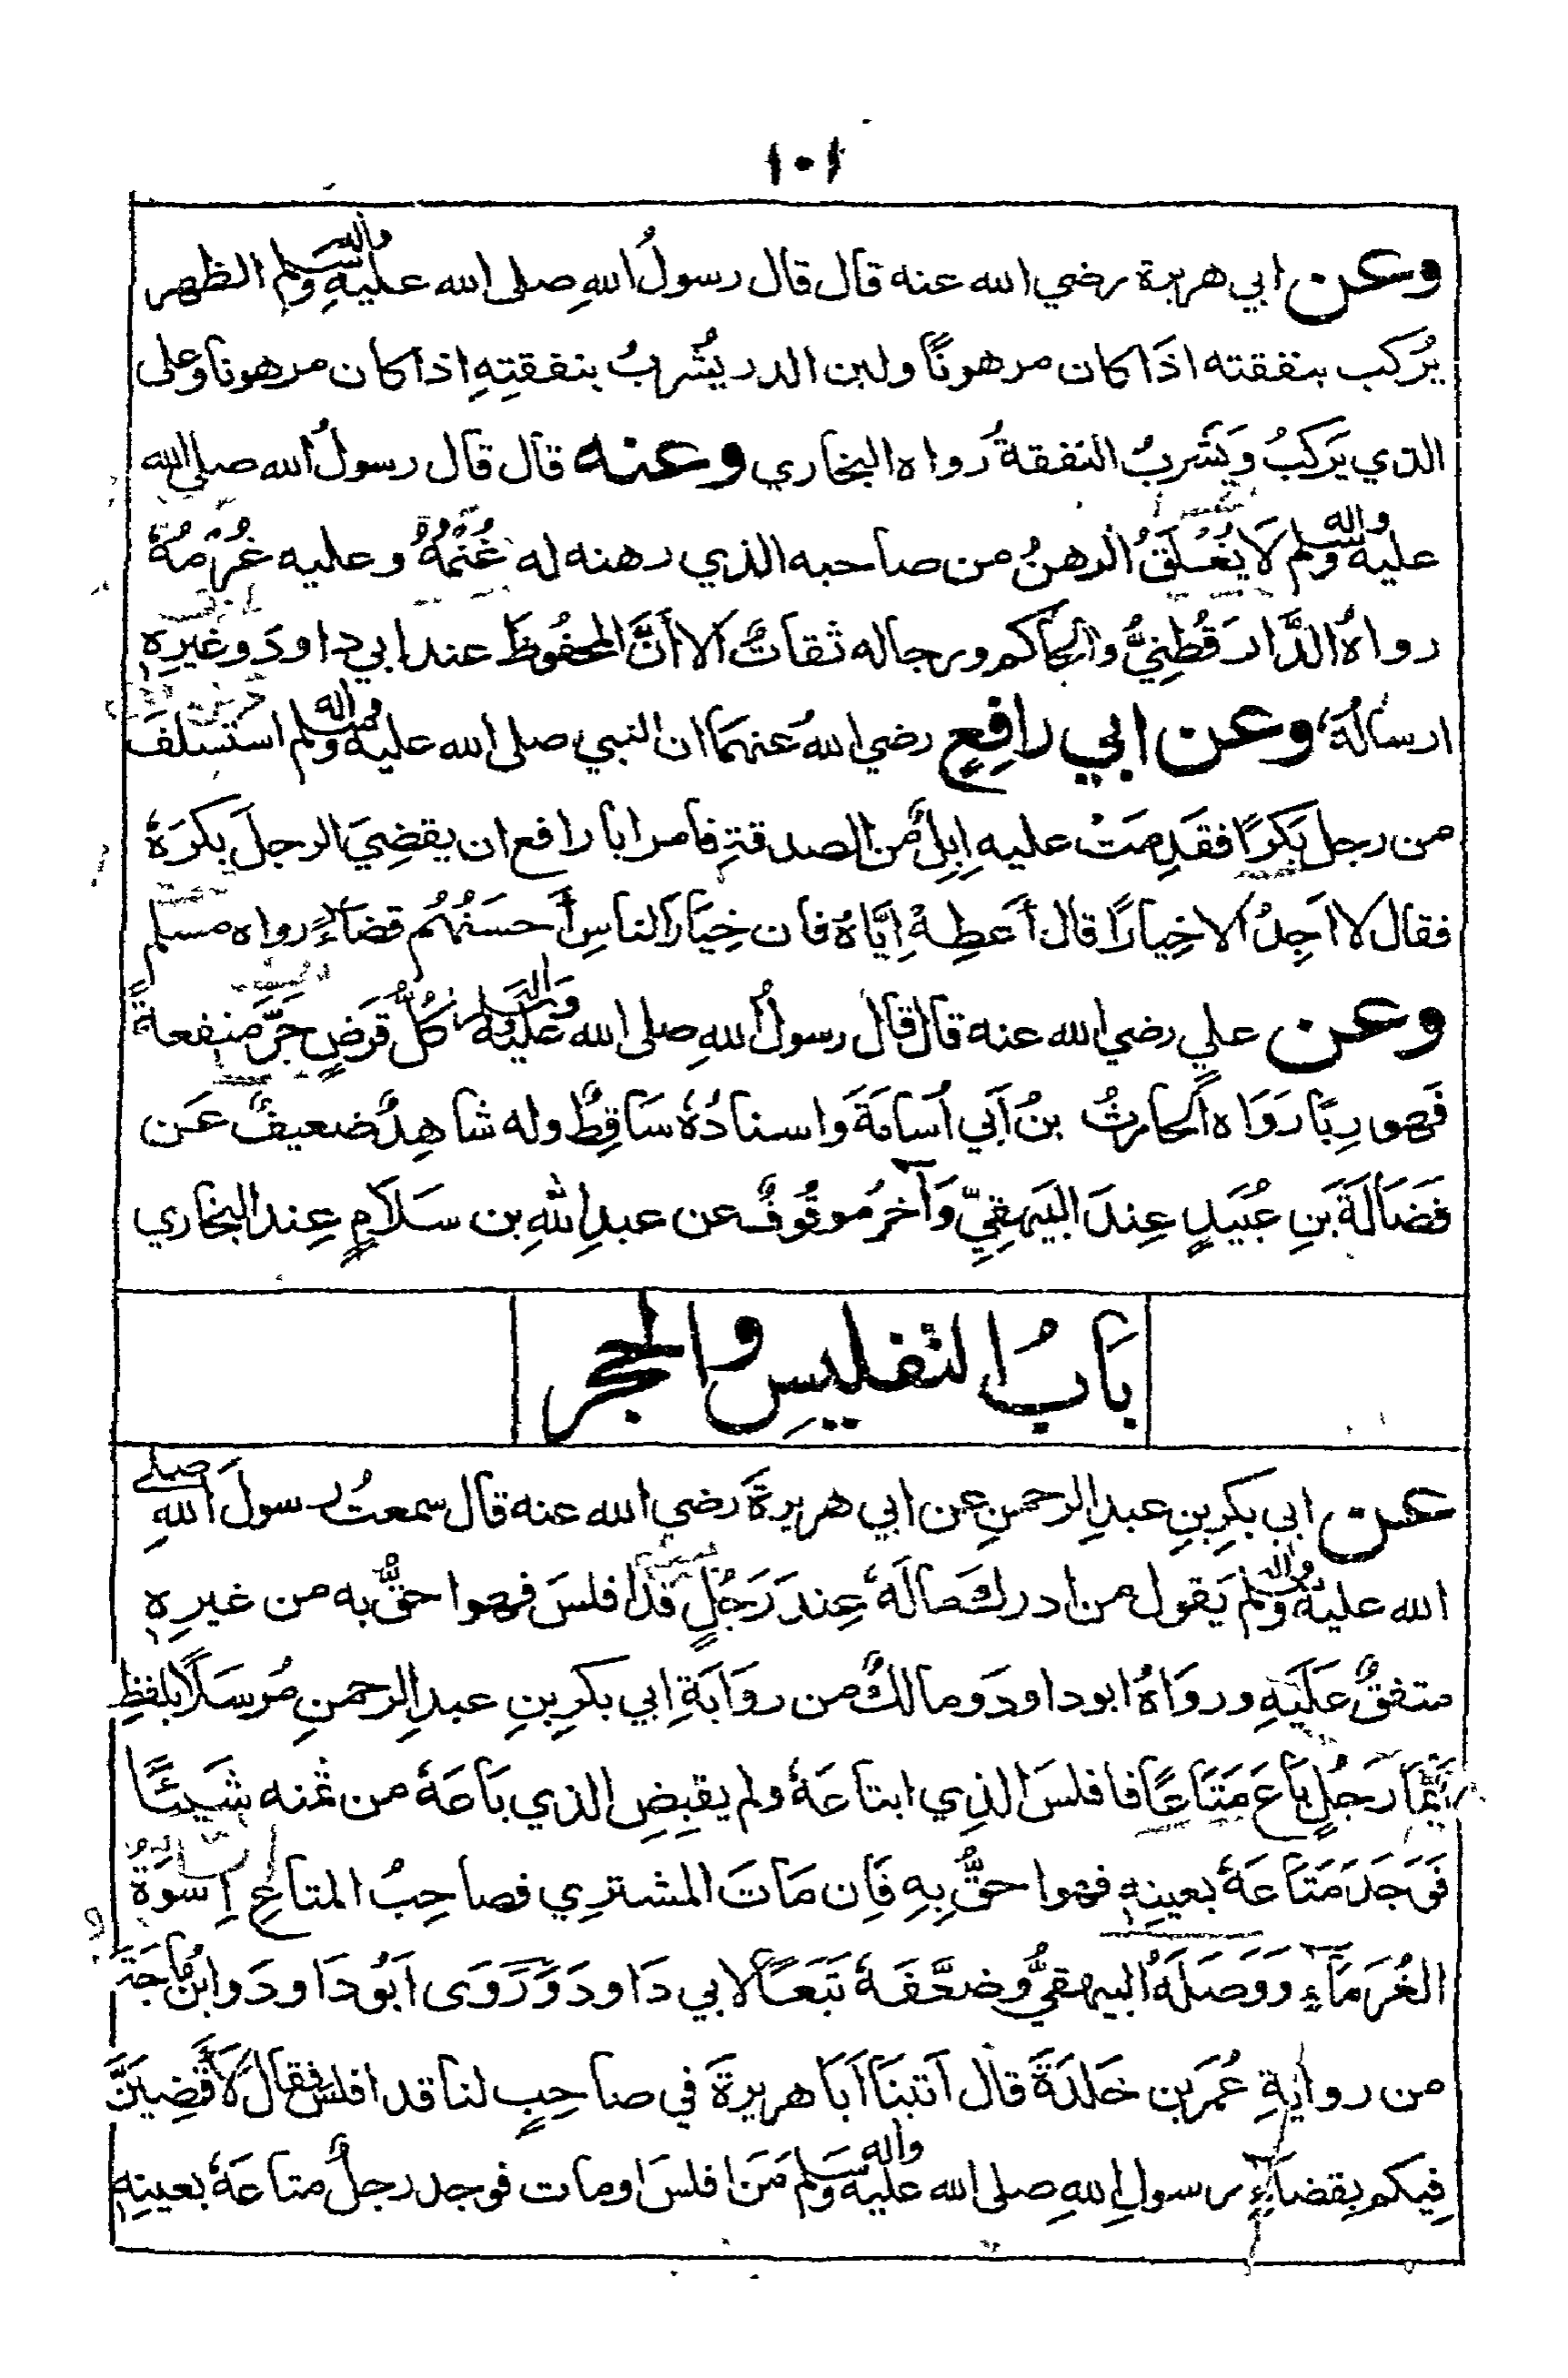 ١٠١
وعن ابي هريرة رضي الله عنه قال قال رسولُ اللهِ صلى الله عليهِ واله وسلم الظهر
يُركب بنفقته اذَا كان مرهونًا ولبن الدر يُشربُ بنفقتِهِ اذا كان مرهونا وعلى
الذي يَركبُ وَيَشربُ النفقةُ رواه البخاري وعنه قال قال رسولُ الله صلى الله
عليه واله وسلم لَا يَغْلَقُ الرهنُ من صاحبه الذي رهنه له غُنْمُهُ وعليه غُرْمُهُ
رواهُ الدَّارَقُطنِيُّ والحاكم ورجاله ثقاتٌ الا أنَّ المحفُوظَ عند ابي داودَ وغيرِهِ
ارسالُهُ وعن ابي رافِعٍ رضي اللهُ عنهمَا ان النبي صلى الله عليه واله وسلم استَسلفَ
من رجل بَكرًا فقَدِمَتْ عليهِ اِبِلٌ من الصدقةِ فامر ابا رافع ان يقضِيَ الرجلَ بكرَهُ
فقال لا اَجِدُ الا خِيارًا قال أَعطِهْ اِيَّاهُ فان خِيَارَ الناسِ أَحسَنُهُم قضَاءً رواه مسلم
وعن علي رضي الله عنه قال قال رسولُ اللهِ صلى الله عليه واله وسلم كُلُّ قَرَضٍ جَرَّ منفعةً
فَهو رِبًا رَوَاه الحارثُ بنُ اَبي اُسامَةَ واسنادُهُ سَاقِطٌ وله شاهِدٌ ضعيفٌ عَن
فَضَالَةَ بَنِ عُبَيَدٍ عِندَ البَيَهقِيِّ وَآخرُ موقُوفٌ عن عبدِ اللهِ بن سَلَامٍ عِند البخاري
بَابُ التفليسِ والحجر
عن ابي بكرِ بنِ عبدِ الرحمنِ عن ابي هريرةَ رضي الله عنه قال سمعتُ رسولَ اللهِ صلى
الله عليه واله وسلم يَقول من ادرك مالَهُ عِندَ رَجُلٍ قَد افلسَ فهو احقُّ به من غيرِهِ
متفقٌ عَلَيَهِ وروَاهُ ابو داودَ ومالكٌ من روَايَةِ ابي بكرِ بنِ عبدِ الرحمنِ مُرسَلًا بلفظِ
اَيُّمَا رَجُلٍ بَاعَ مَتَاعًا فافلسَ الذِي ابتاعَهُ ولم يقبِضِ الذي بَاعَهُ من ثمنه شَيئًا
فَوَجَدَ مَتَاعَهُ بعينِهِ فهو احقُّ بِهِ فَاِن مَاتَ المشترِي فصاحِبُ المتاعِ اِسوَةُ
الغُرَمَاءِ وَوَصَلَهُ البيهقيُّ وضعَّفَهُ تَبَعًا لابي دَاودَ وَرَوَى اَبُو دَاودَ وابنُ مَاجَة
من روايةِ عُمَرَ بن خَلدَةَ قال اَتَينَا اَبَا هريرةَ في صاحِبٍ لنا قد افلسَ فقال لَاَقضِيَنَّ
فِيكم بِقضاءِ رسولِ اللهِ صلى الله عليه واله وسلم مَن افلسَ او مات فوجد رجلٌ متاعَهُ بعينِهِ